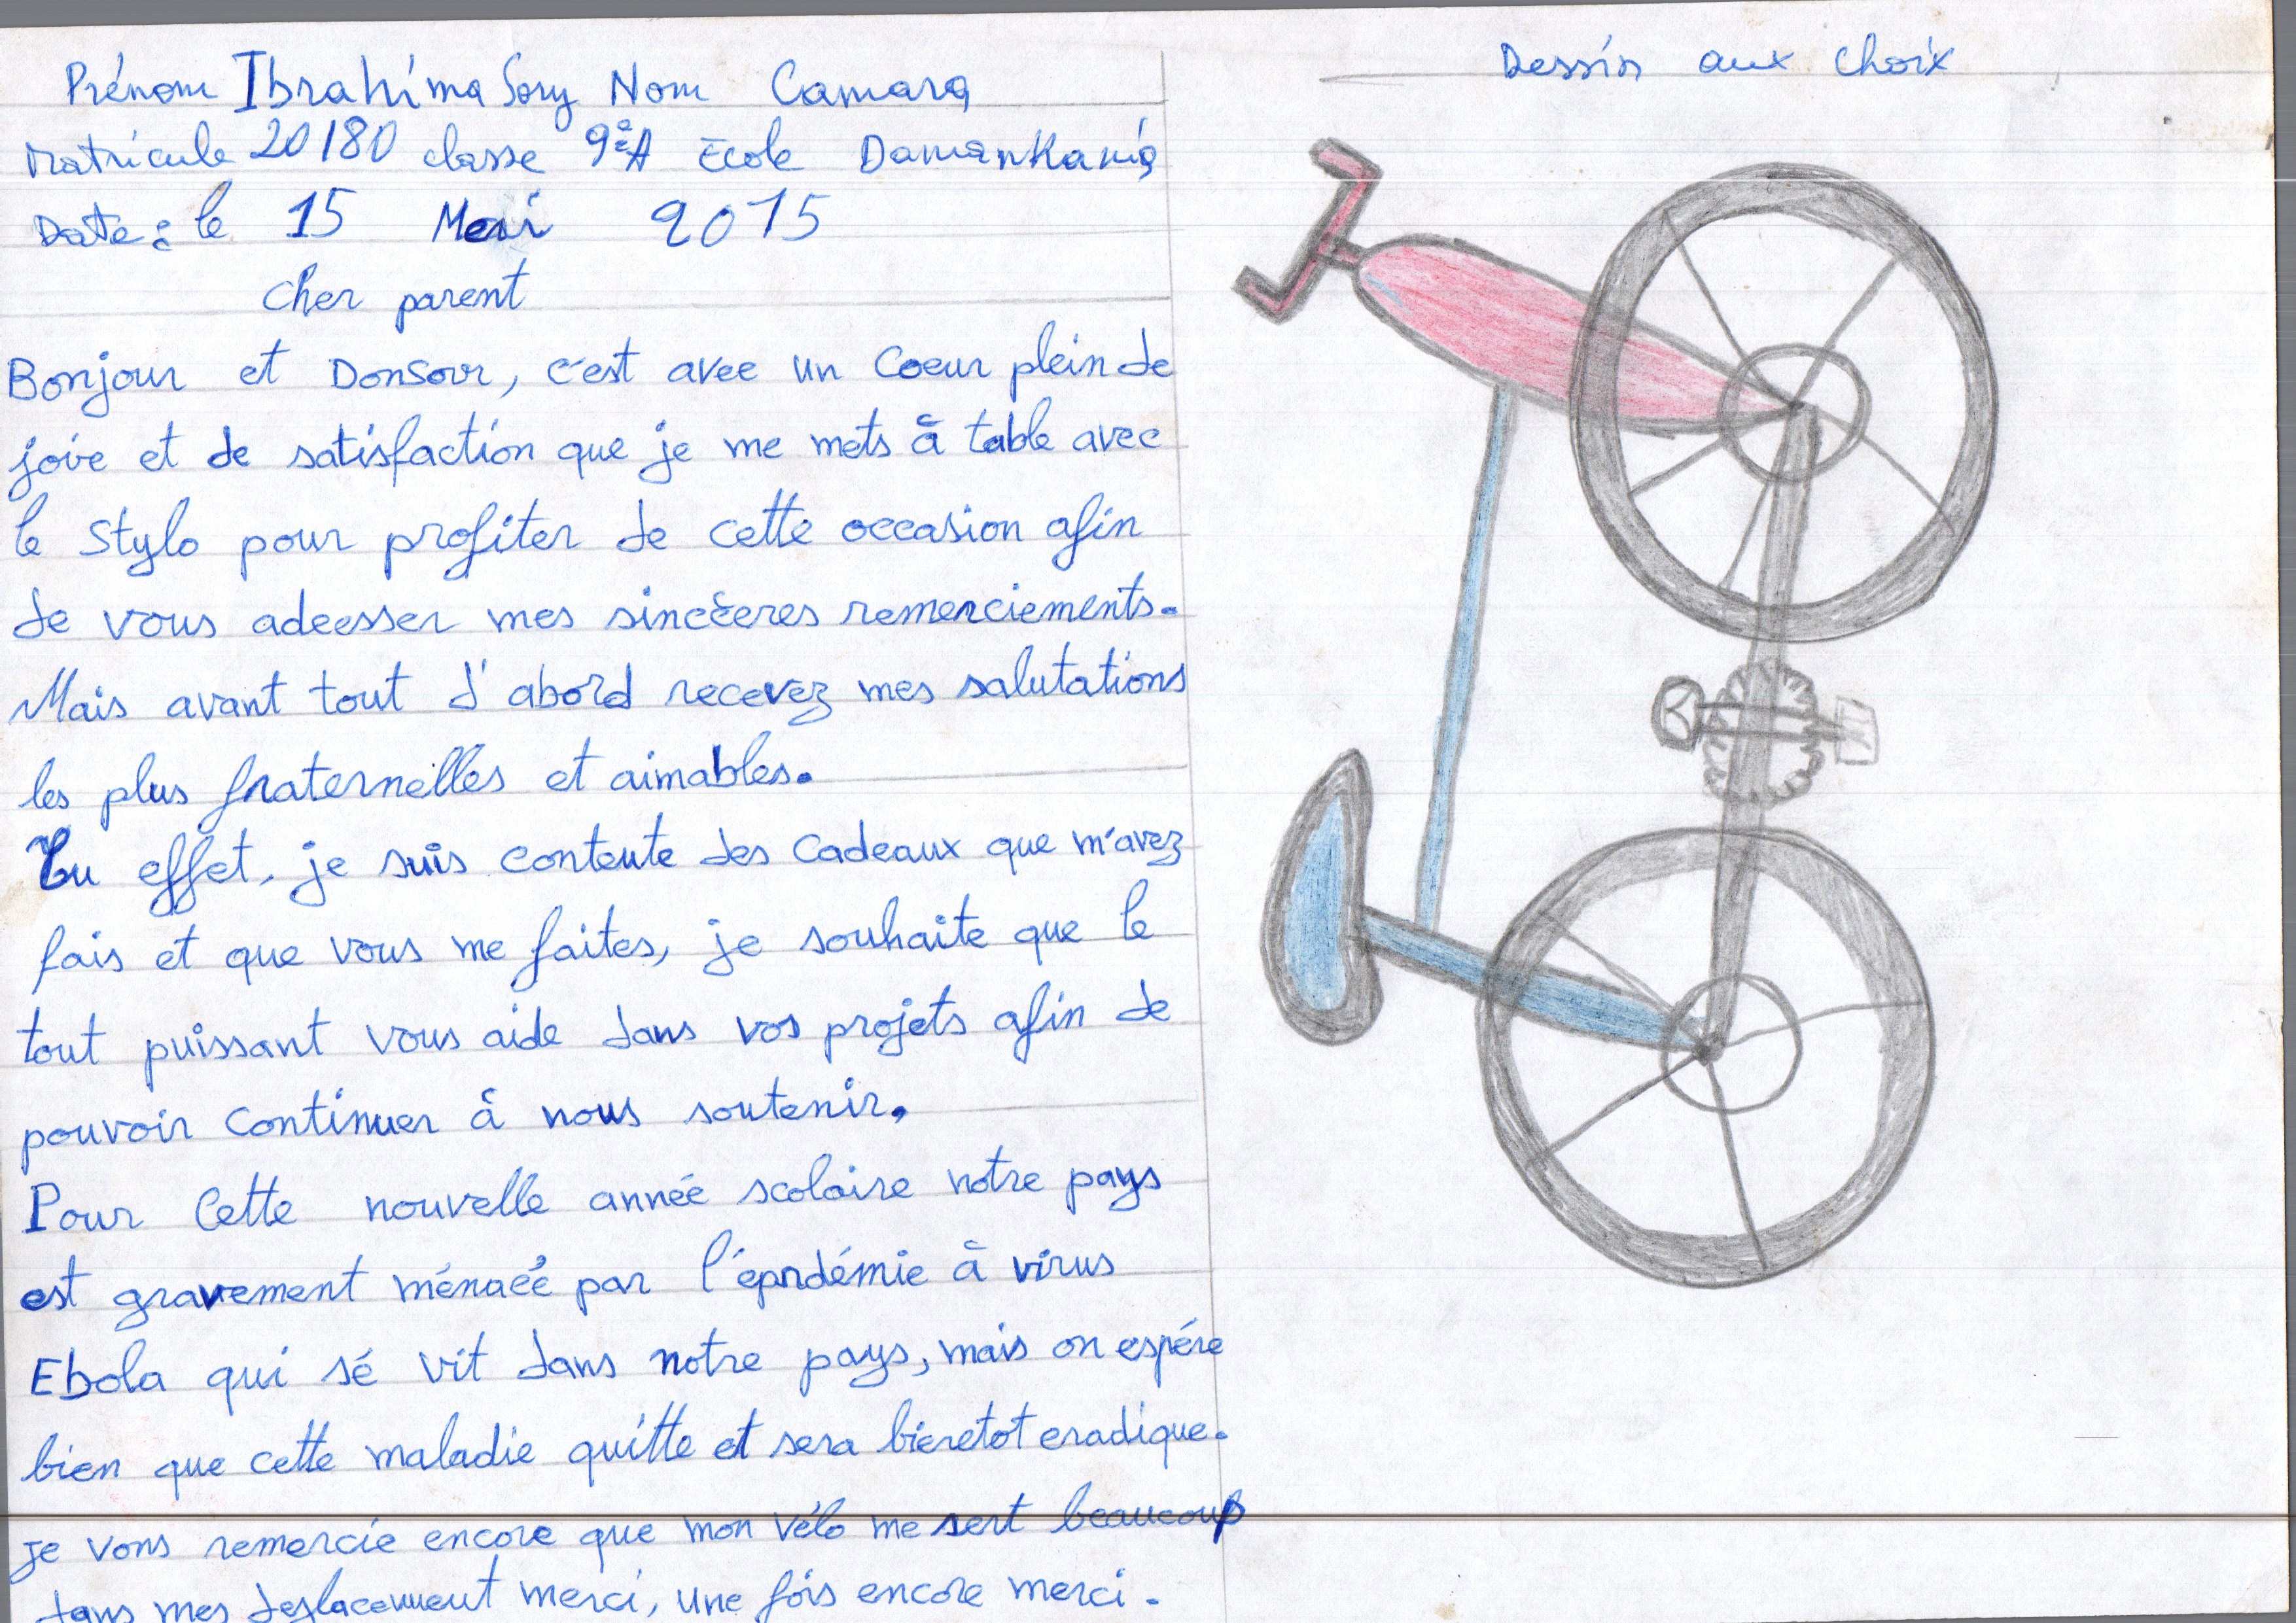 Prénom Ibrahima Sory Nom Camara
Matricule 20180 classe 9è A Ecole Damankanią
Date: le 15 Mai 2015
Cher parent
Bonjour et Bonsoir, c'est avec un Coeur plein de
joie et de satisfaction que je me mets à table avec
le Stylo pour profiter de cette occasion afin
de vous adeesser mes sincèeres remerciements.
Mais avant tout d'abord recevez mes salutations
les plus fraternelles et aimables.
En effet, je suis contente des cadeaux que m'avez
fais et que vous me faites, je souhaite que le
tout puissant vous aide dans vos projets afin de
pouvoir continuer à nous soutenir.
Pour Cette nouvelle année scolaire notre pays
est gravement ménacé par l'épidémie à virus
Ebola qui sé vit dans notre pays, mais on espére
bien que cette maladie quitte et sera bientot eradique.
je vous remercie encore que mon vélo me sert beaucoup
dans mes deplacement merci, une fois encore merci.
Dessin aux choix